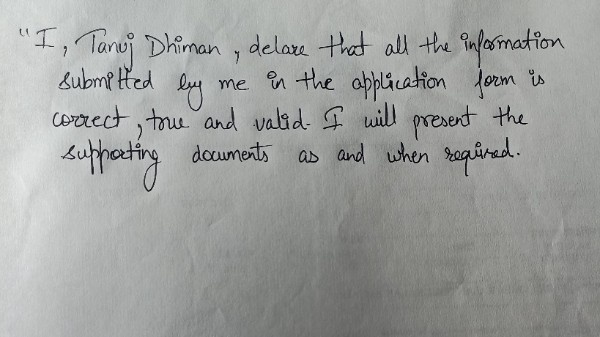 "I, Tanuj Dhiman, delare that all the information
submitted by me in the application form is
correct, true and valid. I will present the
supporting documents as and when required.